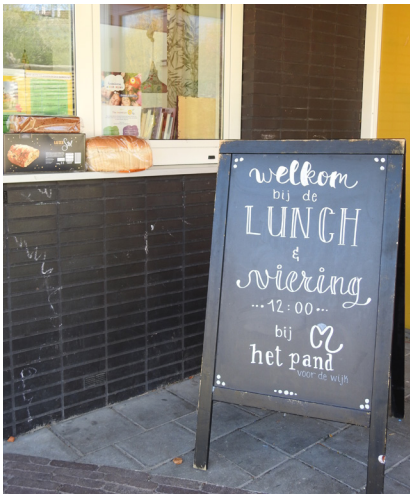 welkom
bij de
LUNCH
&
viering
...12:00...
bij
het pand
voor de wijk